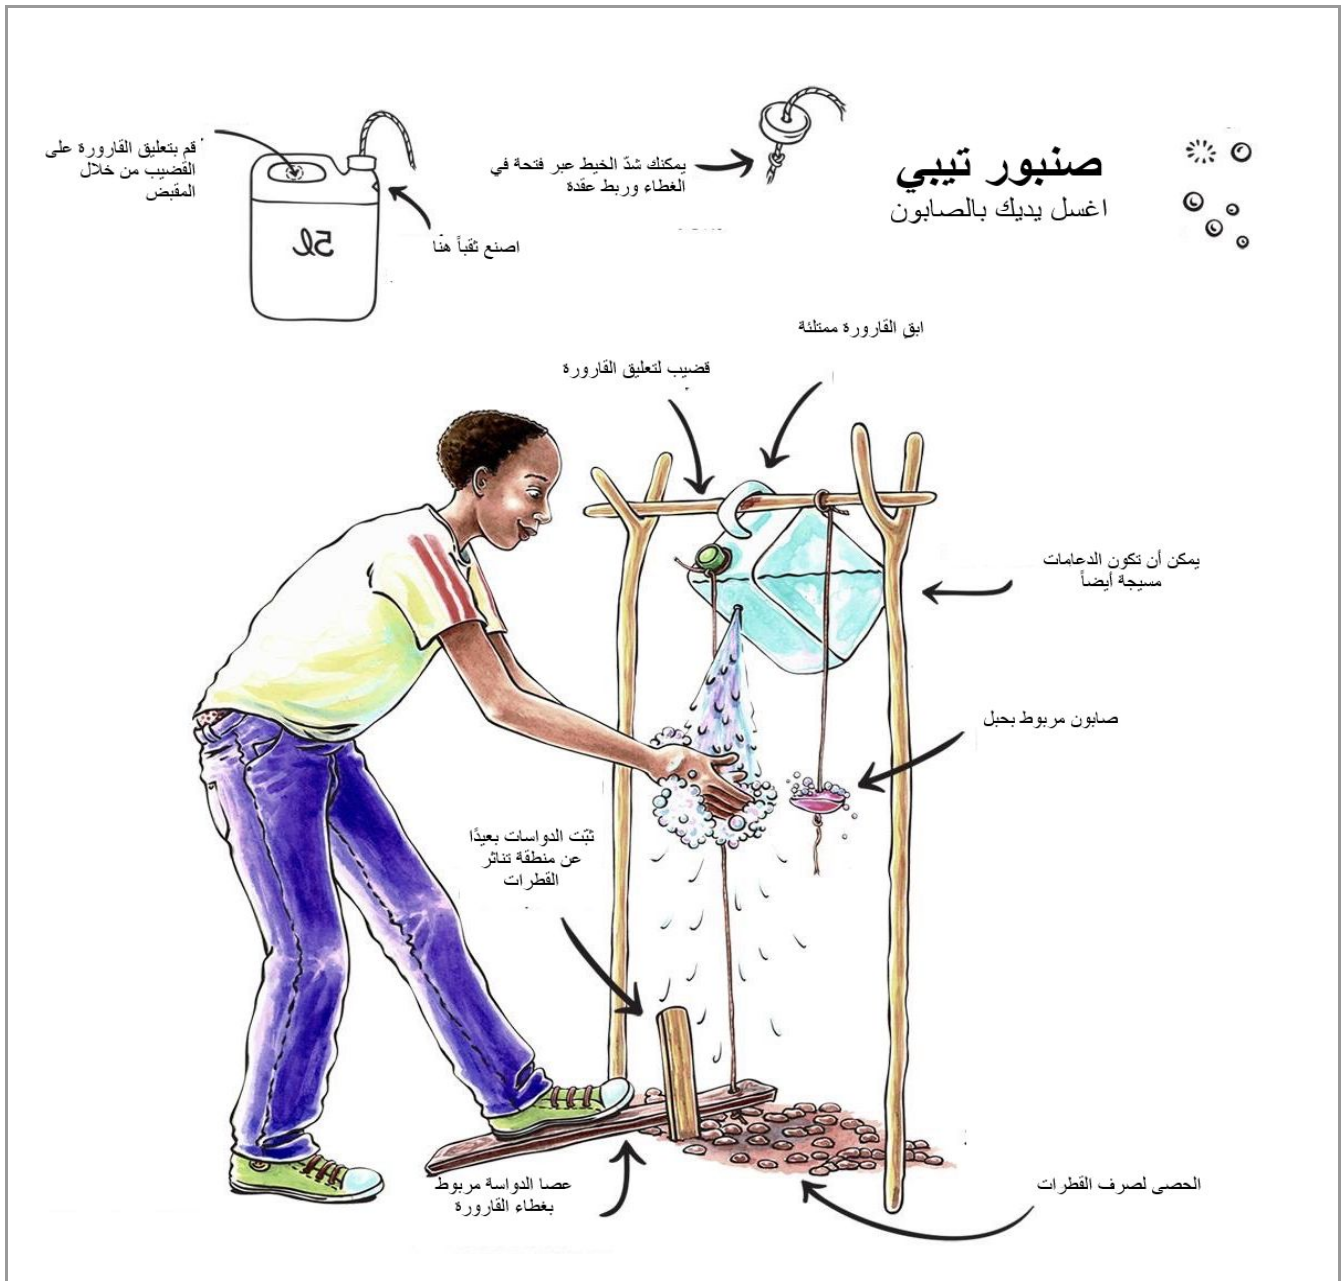 صنبور تيبي
اغسل يديك بالصابون
يمكنك شدّ الخيط عبر فتحة في
الغطاء وربط عقدة
قم بتعليق القارورة على
القضيب من خلال
المقبض
5l
اصنع ثقباً هنا
ابقِ القارورة ممتلئة
قضيب لتعليق القارورة
يمكن أن تكون الدعامات
مسيجة أيضاً
صابون مربوط بحبل
ثبّت الدواسات بعيدًا
عن منطقة تناثر
القطرات
عصا الدواسة مربوط
بغطاء القارورة
الحصى لصرف القطرات